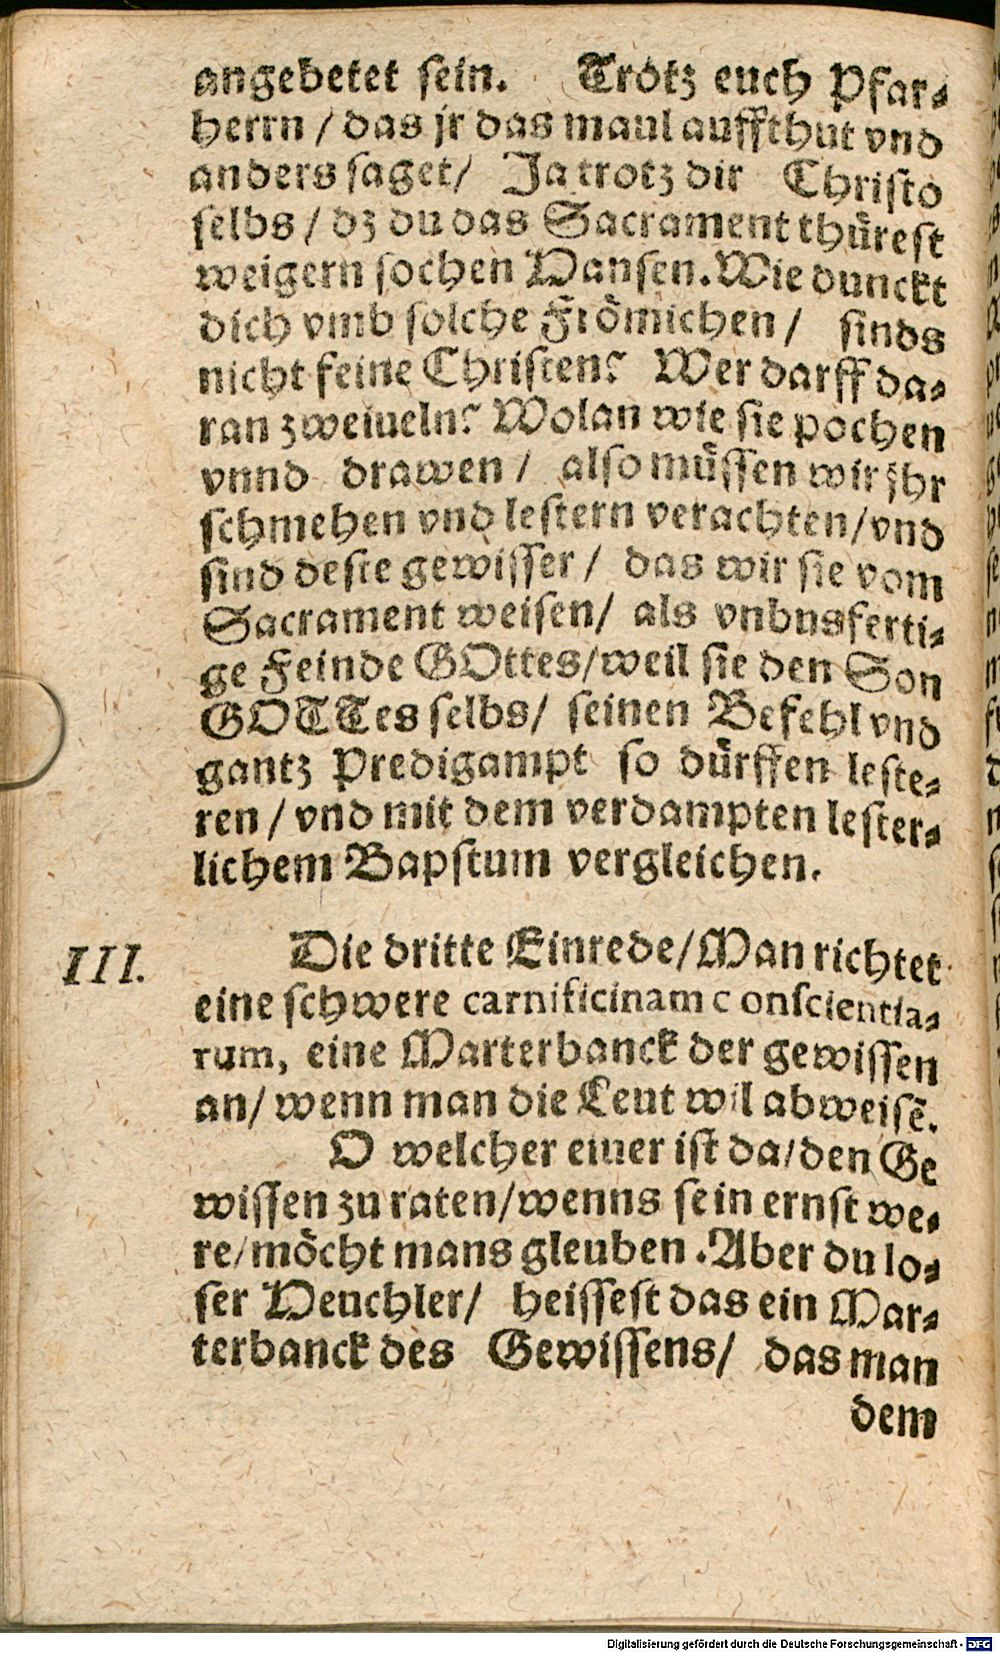 angebetet sein. Trotz euch Pfar-
herrn / das jr das maul auffthut vnd
anders saget / Ja trotz dir Christo
selbs / dz du das Sacrament thürest
weigern sochen Hansen. Wie dunckt
dich vmb solche Frömichen / sinds
nicht feine Christen? Wer darff da-
ran zweiueln? Wolan wie sie pochen
vnnd drawen / also müssen wir jhr
schmehen vnd lestern verachten / vnd
sind deste gewisser / das wir sie vom
Sacrament weisen / als vnbusferti-
ge Feinde GOttes / weil sie den Son
GOTTes selbs / seinen Befehl vnd
gantz Predigampt so dürffen leste-
ren / vnd mit dem verdampten lester-
lichem Bapstum vergleichen.
III. Die dritte Einrede / Man richtet
eine schwere carnificinam c onscientia-
rum, eine Marterbanck der gewissen
an / wenn man die Leut wil abweisē.
O welcher einer ist da / den Ge
wissen zu raten / wenns sein ernst we-
re / möcht mans gleuben. Aber du lo-
ser Heuchler / heissest das ein Mar-
terbanck des Gewissens / das man
dem
Digitalisierung gefördert durch die Deutsche Forschungsgemeinschaft - DFG